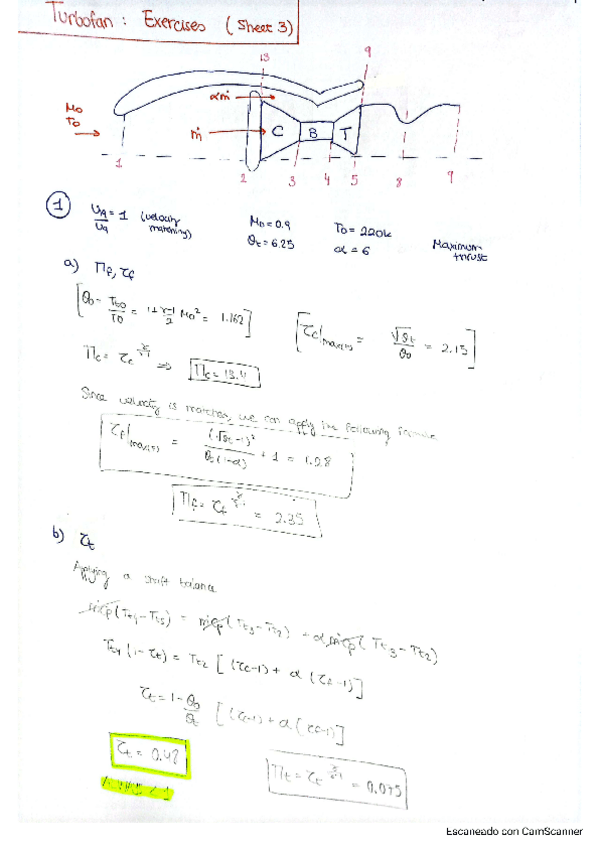 Turbofan : Exercises (Sheet 3)
13
9
αṁ
M0
T0
ṁ
C B T
1 2 3 4 5 8 9
① U19/U9 = 1 (velocity matching) M0 = 0.9 T0 = 220k Maximum thrust
θt = 6.25 α = 6
a) Πf, τf
[θ0 = Tt0/T0 = 1 + γ-1/2 M0² = 1.162] [τc|max(τs) = √θt/θ0 = 2.15]
Πc = τc^γ/γ-1 ⇒ Πc = 13.4
Since velocity is matched, we can apply the following formula
τf|max(τs) = (√θt-1)²/θt(1-α) + 1 = 1.28
Πf = τf^γ/γ-1 = 2.35
b) τt
Applying a shaft balance
ṁcp (Tt4-Tt5) = ṁcp (Tt3-Tt2) + αṁcp (Tt3-Tt2)
Tt4 (1-τt) = Tt2 [(τc-1) + α (τf-1)]
τt = 1 - θ0/θt [(τc-1) + α (τf-1)]
τt = 0.48
Πt = τt^γ/γ-1 = 0.075
Escaneado con CamScanner